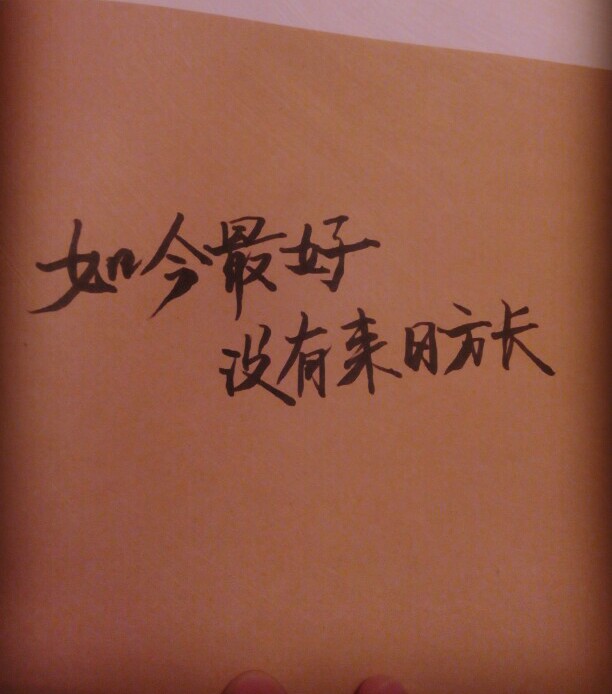 如今最好
没有来日方长